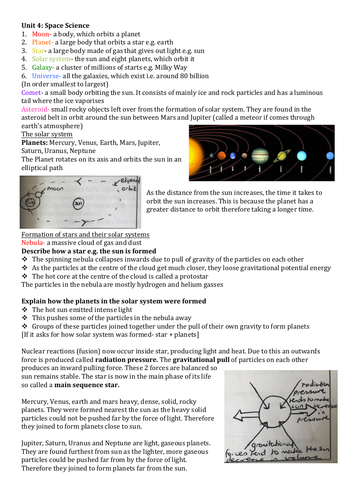 Unit 4: Space Science
1. Moon- a body, which orbits a planet
2. Planet- a large body that orbits a star e.g. earth
3. Star- a large body made of gas that gives out light e.g. sun
4. Solar system- the sun and eight planets, which orbit it
5. Galaxy- a cluster of millions of starts e.g. Milky Way
6. Universe- all the galaxies, which exist i.e. around 80 billion
(In order smallest to largest)
Comet- a small body orbiting the sun. It consists of mainly ice and rock particles and has a luminous
tail where the ice vaporises
Asteroid- small rocky objects left over from the formation of solar system. They are found in the
asteroid belt in orbit around the sun between Mars and Jupiter (called a meteor if comes through
earth's atmosphere)
The solar system
Planets: Mercury, Venus, Earth, Mars, Jupiter,
Saturn, Uranus, Neptune
The Planet rotates on its axis and orbits the sun in an
elliptical path
moon
sun
orbit
As the distance from the sun increases, the time it takes to
orbit the sun increases. This is because the planet has a
greater distance to orbit therefore taking a longer time.
Formation of stars and their solar systems
Nebula- a massive cloud of gas and dust
Describe how a star e.g. the sun is formed
❖ The spinning nebula collapses inwards due to pull of gravity of the particles on each other
❖ As the particles at the centre of the cloud get much closer, they loose gravitational potential energy
❖ The hot core at the centre of the cloud is called a protostar
The particles in the nebula are mostly hydrogen and helium gasses
Explain how the planets in the solar system were formed
❖ The hot sun emitted intense light
❖ This pushes some of the particles in the nebula away
❖ Groups of these particles joined together under the pull of their own gravity to form planets
[If it asks for how solar system was formed- star + planets]
Nuclear reactions (fusion) now occur inside star, producing light and heat. Due to this an outwards
force is produced called radiation pressure. The gravitational pull of particles on each other
produces an inward pulling force. These 2 forces are balanced so
sun remains stable. The star is now in the main phase of its life
so called a main sequence star.
Mercury, Venus, earth and mars heavy, dense, solid, rocky
planets. They were formed nearest the sun as the heavy solid
particles could not be pushed far by the force of light. Therefore
they joined to form planets close to sun.
Jupiter, Saturn, Uranus and Neptune are light, gaseous planets.
They are found furthest from sun as the lighter, more gaseous
particles could be pushed far from by the force of light.
Therefore they joined to form planets far from the sun.
radiation
pressure
tends to make
sun increase
in
pressure
gravitational
forces tend to make sun
decrease in volume